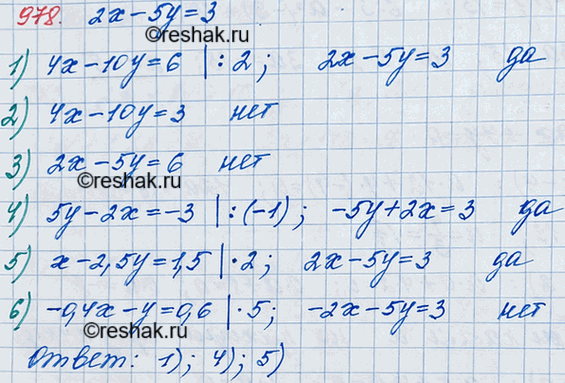 978. 2x-5y=3
©reshak.ru
1) 4x-10y=6 |:2; 2x-5y=3 да
2) 4x-10y=3 нет
3) 2x-5y=6 нет
©reshak.ru
4) 5y-2x=-3 |:(-1); -5y+2x=3 да
5) x-2,5y=1,5 |·2; 2x-5y=3 да
6) -0,4x-y=0,6 |·5; -2x-5y=3 нет
©reshak.ru
Ответ: 1); 4); 5)